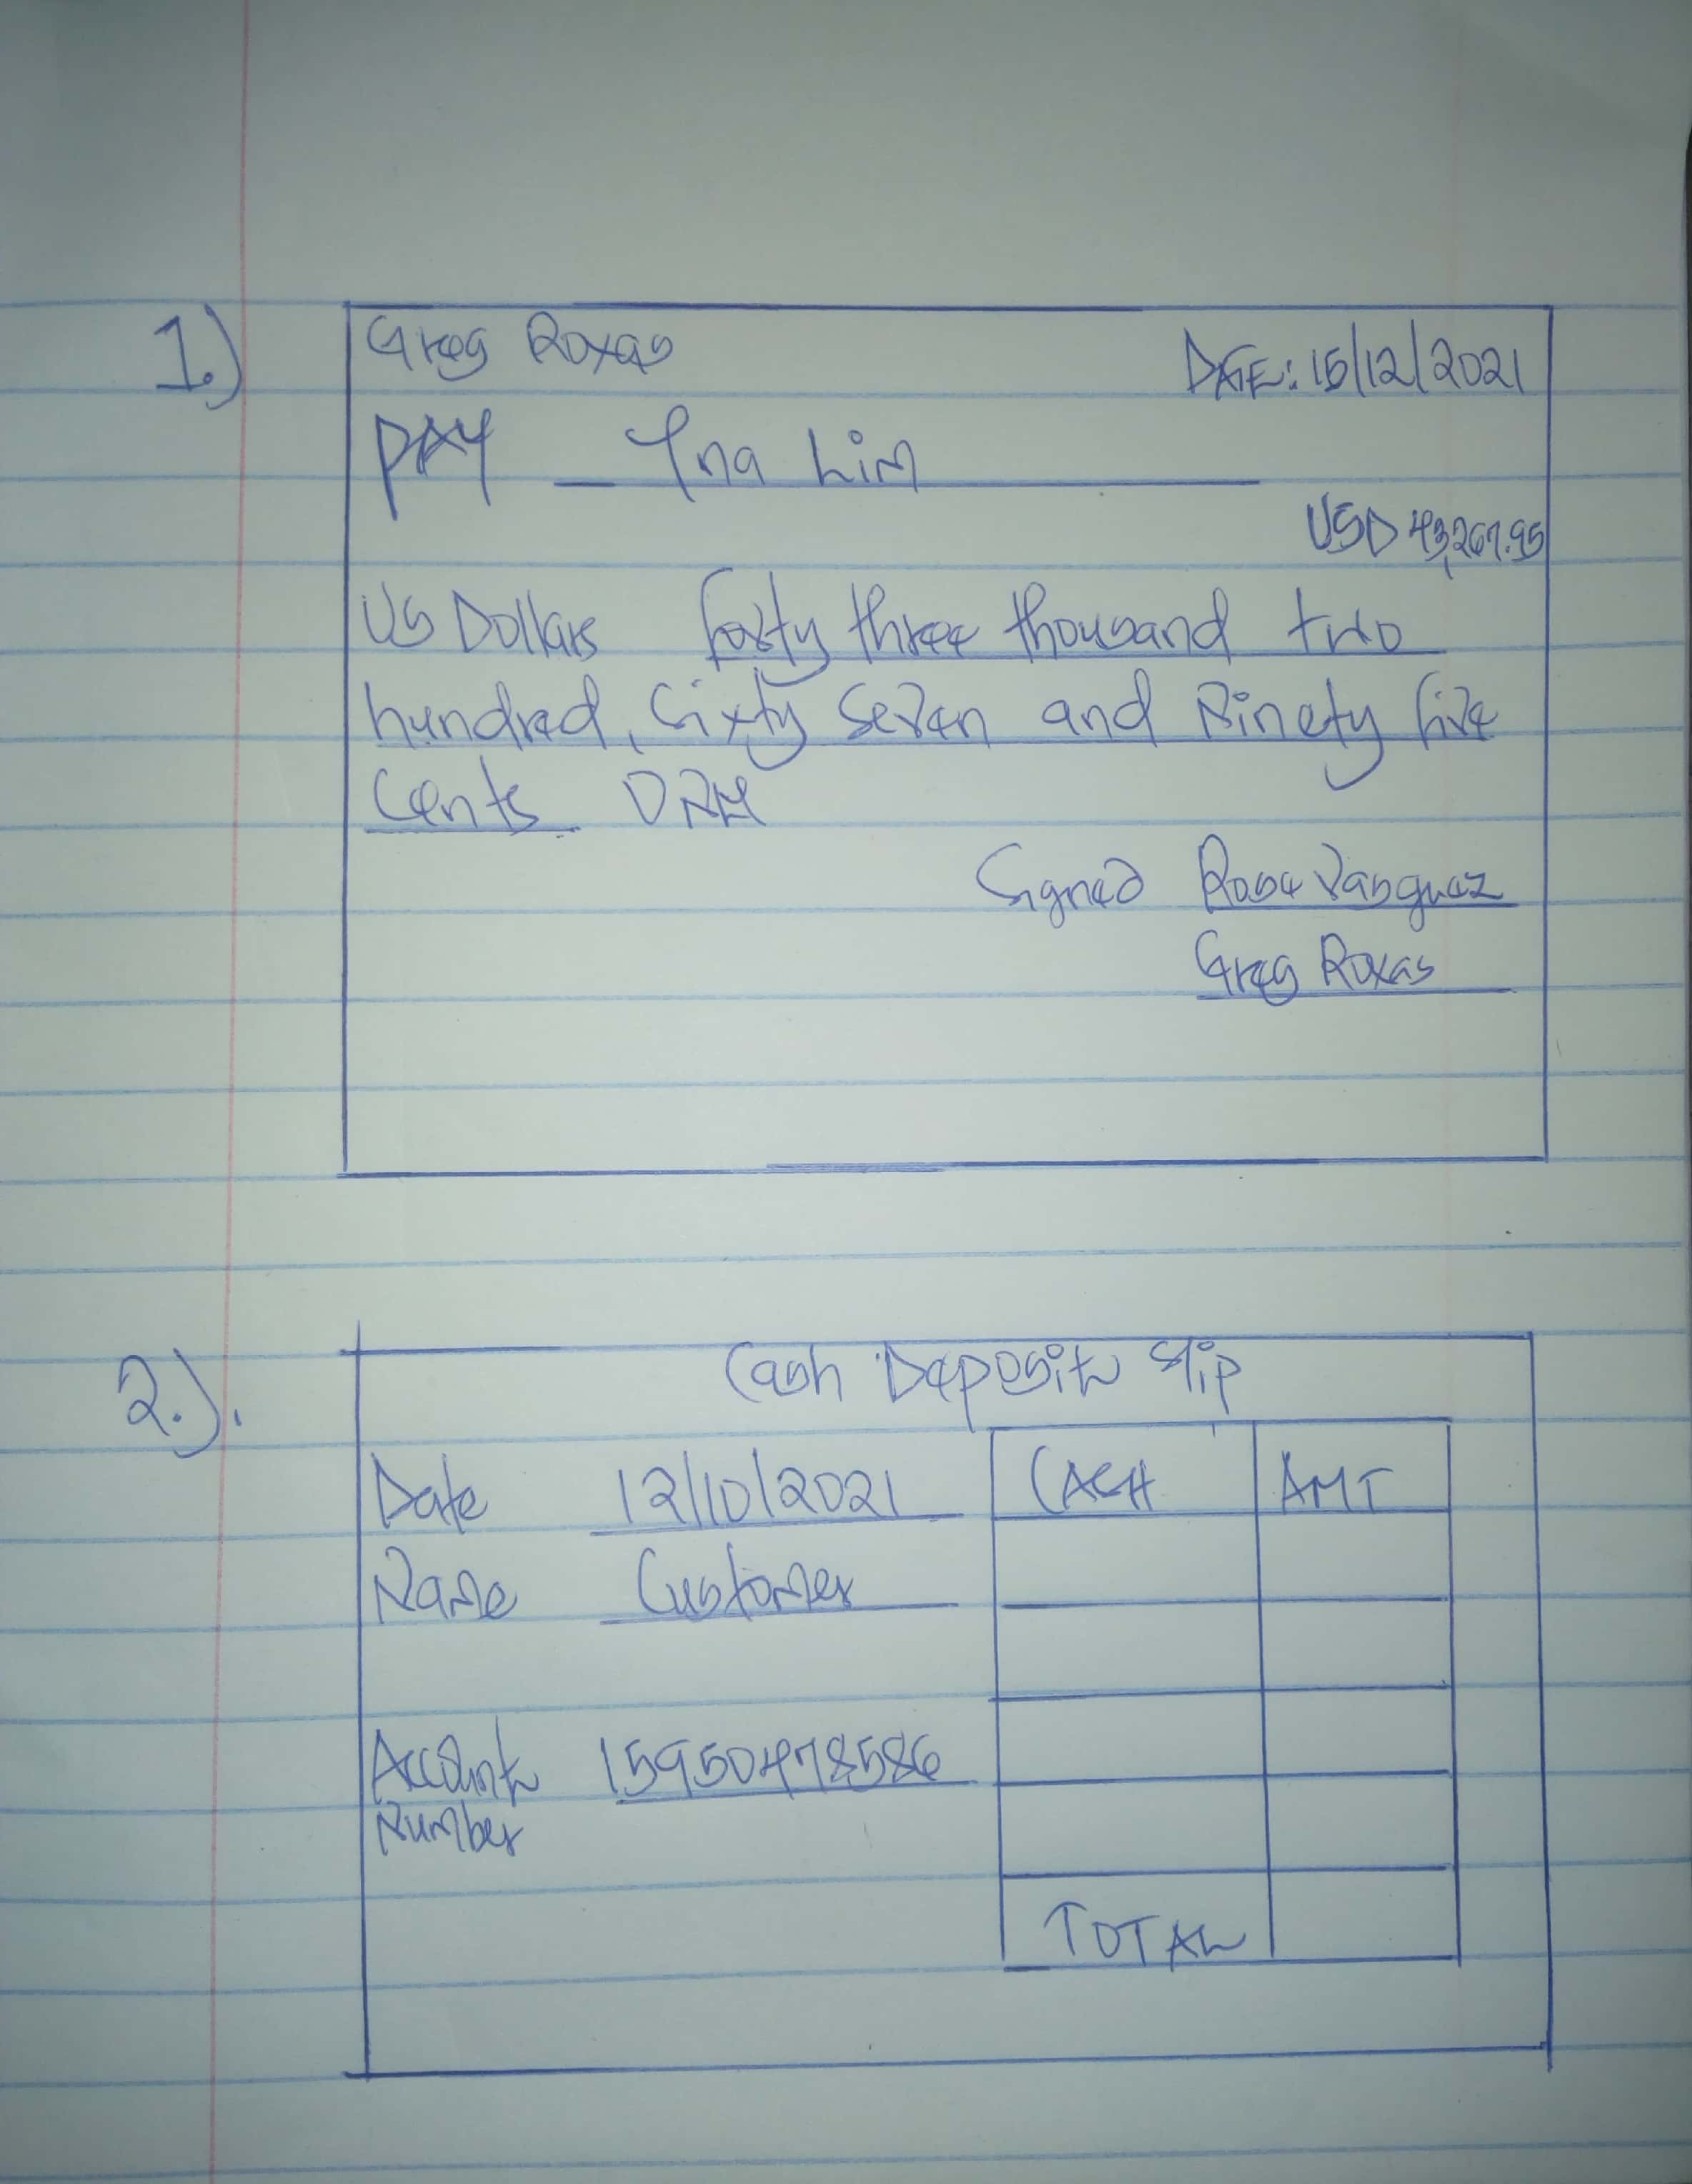 1.)
Greg Roxas
DATE: 15/12/2021
PAY Yna Lim
USD 43,267.95
US Dollars forty three thousand two
hundred, sixty seven and ninety five
cents
Signed Rose Vasquez
Greg Roxas
2.).
Cash Deposit Slip
Date 12/10/2021
CASH AMT
Name Customer
Account 15950478586
Number
TOTAL